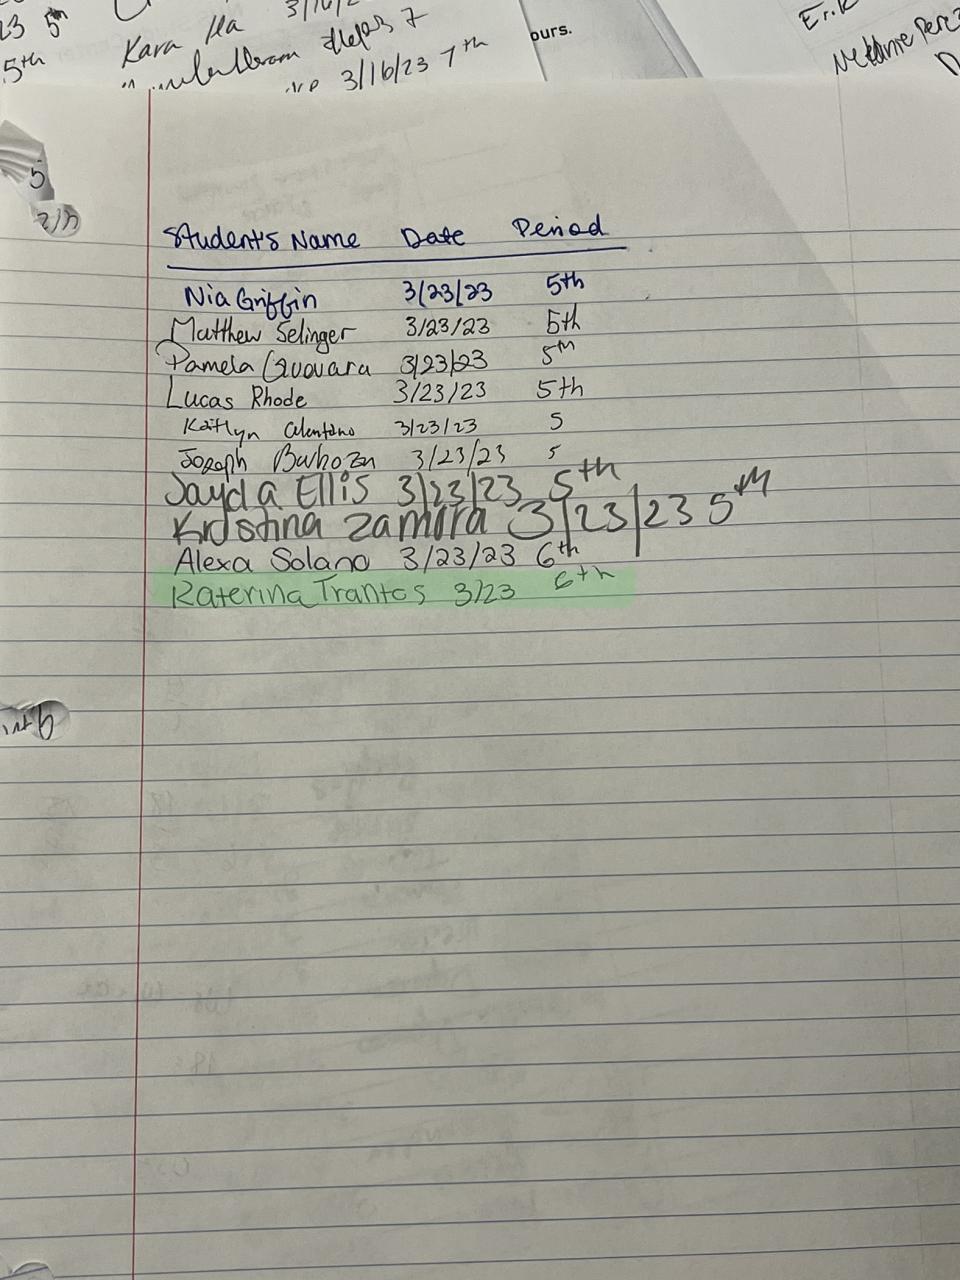 23 5th
5th
Kara Ma 3/16/2
3/16/23 7th
ours.
Erik
Perez
5
Student's Name Date Period
Nia Griffin 3/23/23 5th
Matthew Selinger 3/23/23 5th
Pamela Guovara 3/23/23 5th
Lucas Rhode 3/23/23 5th
Kaitlyn 3/23/23 5
Joseph 3/23/23 5
Jayda Ellis 3/23/23 5th
Kristina Zamora 3/23/23 5th
Alexa Solano 3/23/23 6th
Katerina Trantos 3/23 6th